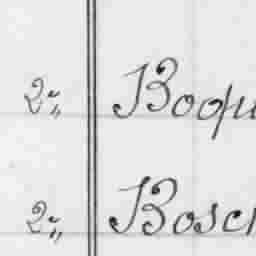 2:„ Boqu
2:„ Bosc